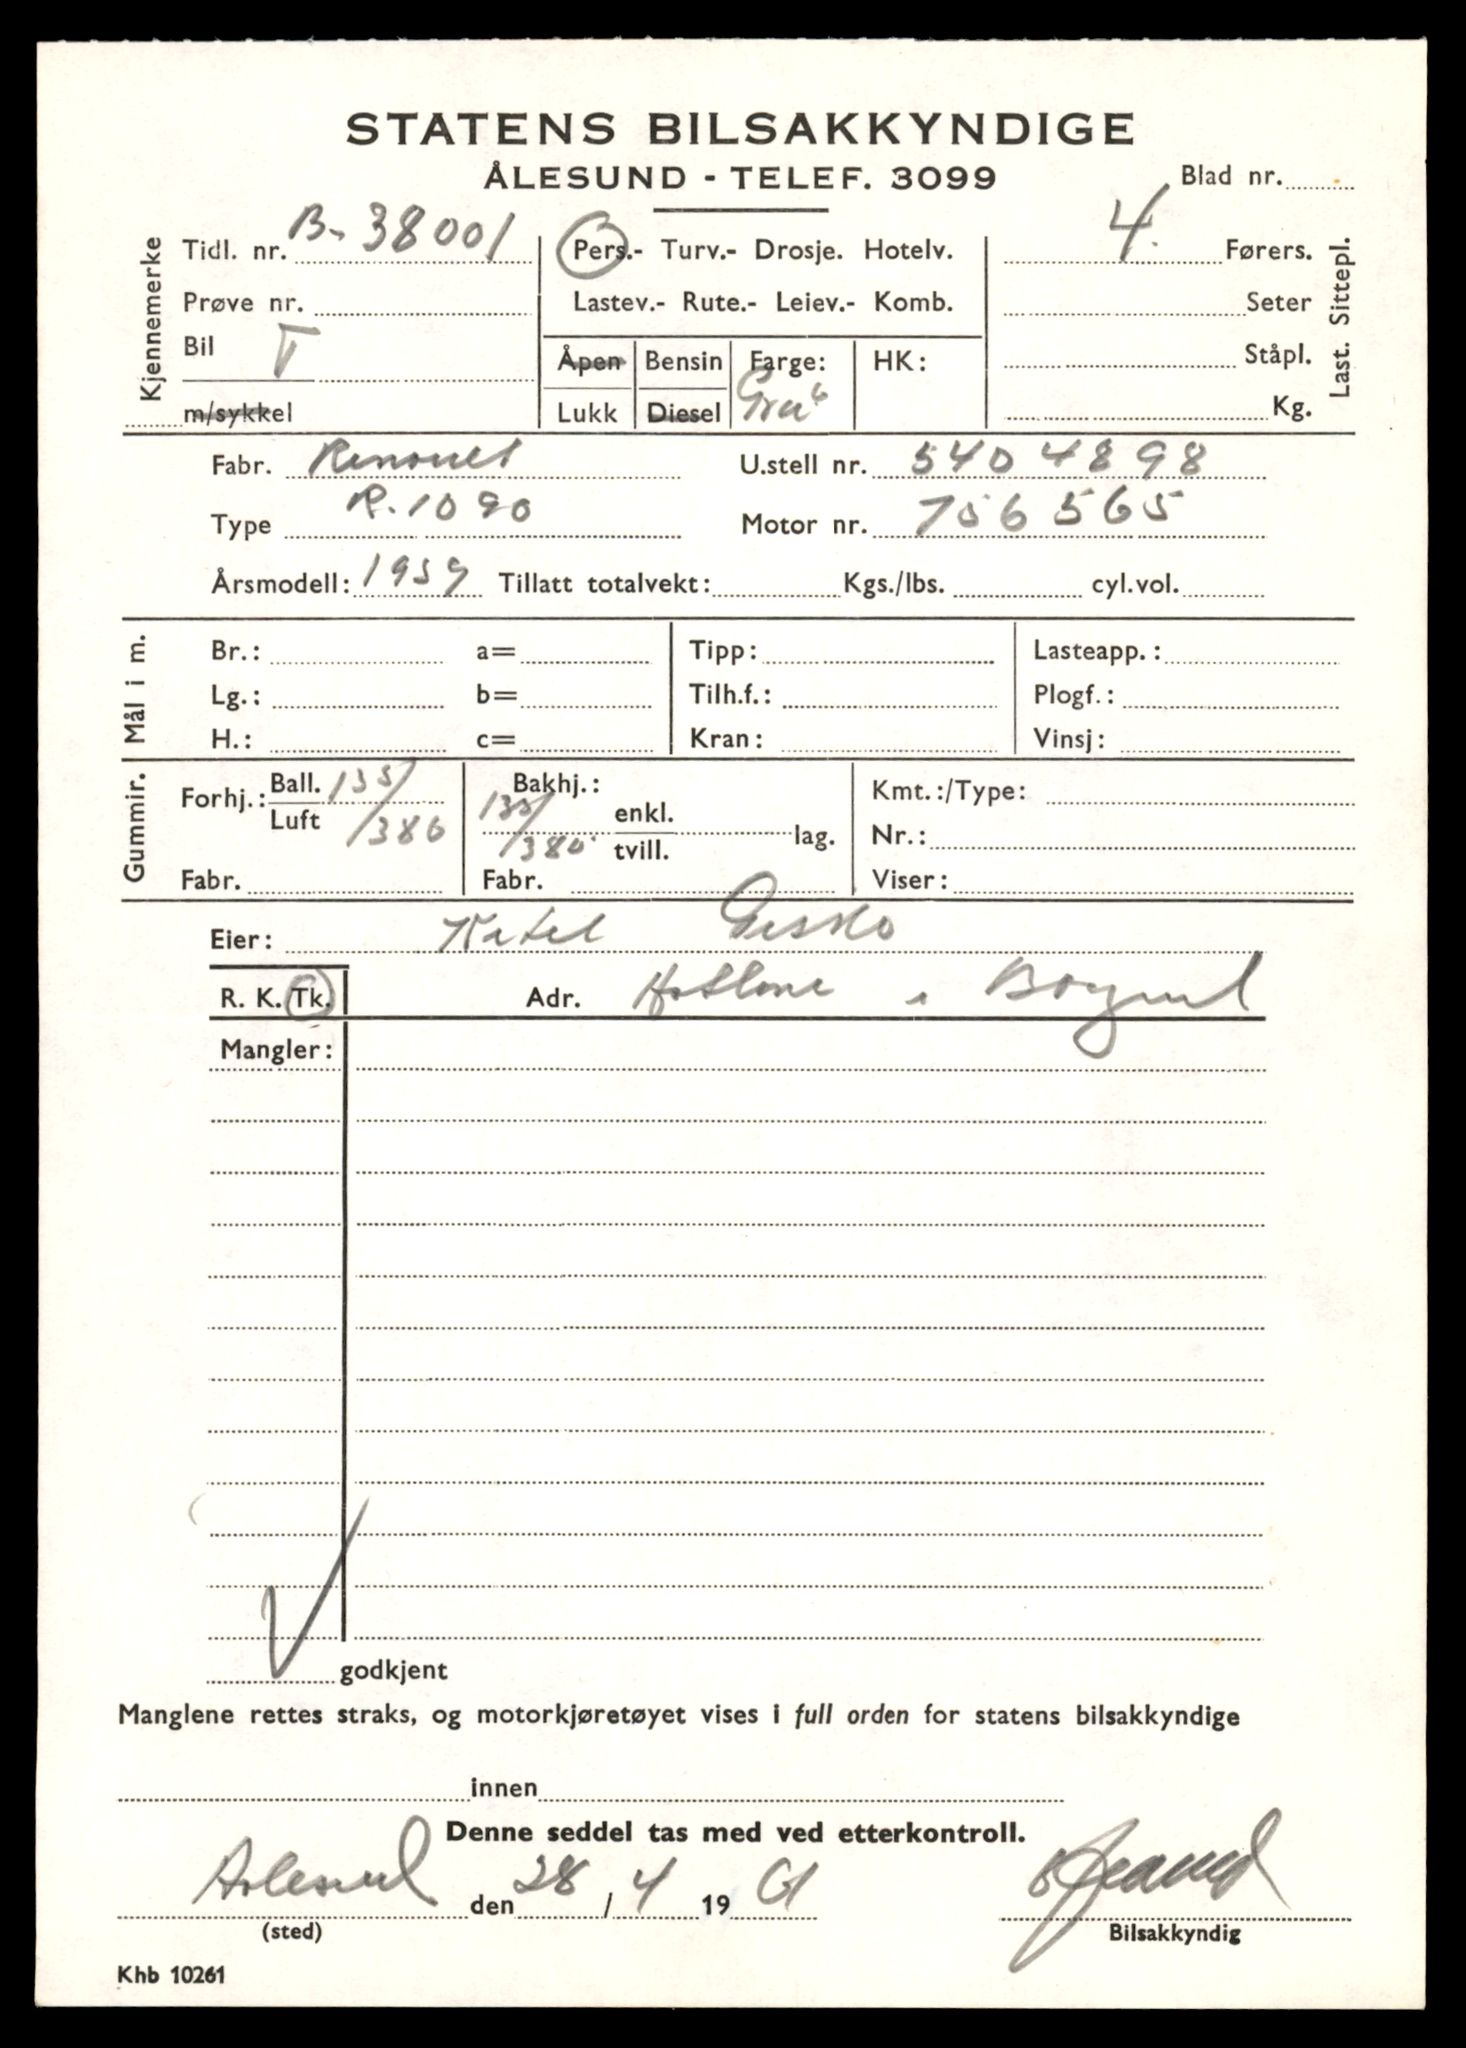 STATENS BILSAKKYNDIGE
ÅLESUND - TELEF. 3099
Blad nr.
Kjennemerke
Tidl. nr. B- 38001
Prøve nr.
Bil T
m/sykkel
Pers.- Turv.- Drosje. Hotelv.
Lastev.- Rute.- Leiev.- Komb.
Åpen Bensin Farge: HK:
Lukk Diesel Grå
4. Førers.
Seter
Ståpl.
Kg.
Last. Sittepl.
Fabr. Renault U.stell nr. 5404898
Type R.1090 Motor nr. 756565
Årsmodell: 1959 Tillatt totalvekt: Kgs./lbs. cyl.vol.
Mål i m.
Br.: a= Tipp: Lasteapp.:
Lg.: b= Tilh.f.: Plogf.:
H.: c= Kran: Vinsj:
Gummir.
Forhj.: Ball. 135/
Luft /380
Fabr.
Bakhj.:
135/ enkl.
/380 tvill. lag.
Fabr.
Kmt.:/Type:
Nr.:
Viser:
Eier: Ketil
R. K. Tk. Adr. i
Mangler:
godkjent
Manglene rettes straks, og motorkjøretøyet vises i full orden for statens bilsakkyndige
innen
Denne seddel tas med ved etterkontroll.
Aalesund den 28/4 1961
(sted) Bilsakkyndig
Khb 10261